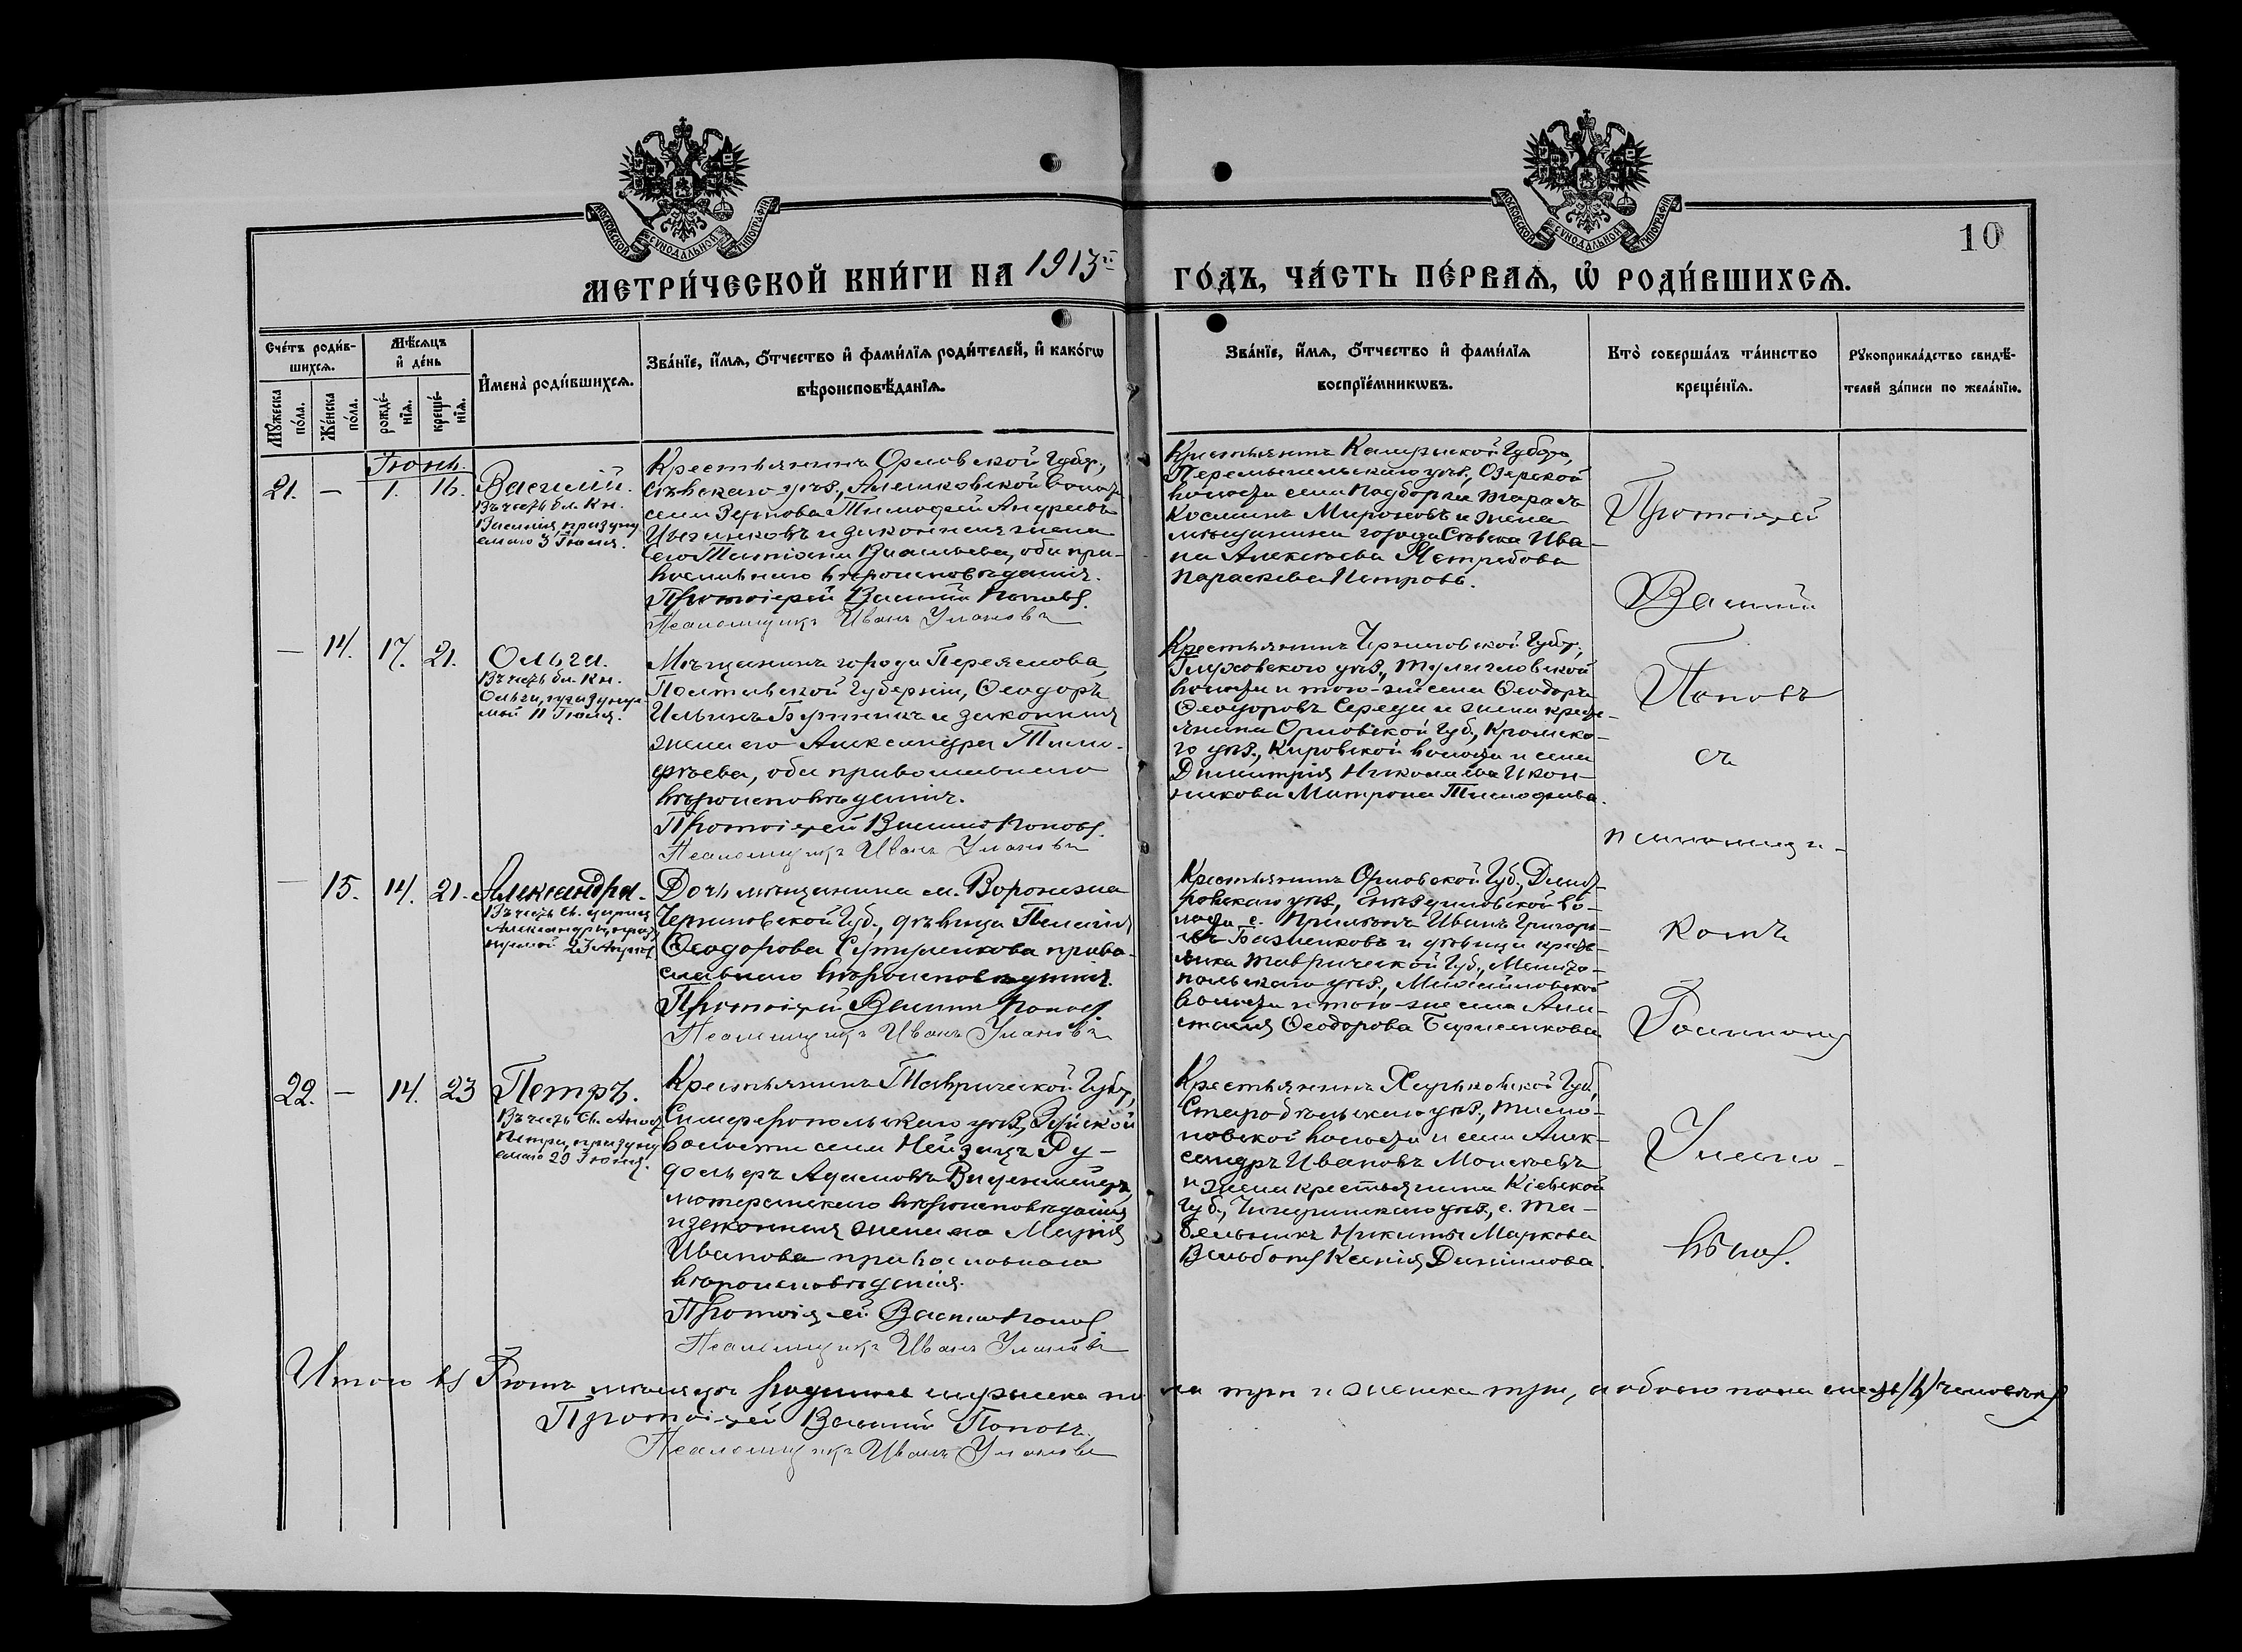 МОСКОВСКОЙ СѴНОДАЛЬНОЙ ТИПОГРАФІИ
МОСКОВСКОЙ СѴНОДАЛЬНОЙ ТИПОГРАФІИ
10
МЕТРИ́ЧЕСКОЙ КНИ́ГИ НА 1913й ГО́ДЪ, ЧА́СТЬ ПЕ́РВАѦ, Ѡ҆ РОДИ́ВШИХСѦ.
Сче́тъ роди́в-
шихсѧ.
Мѣ́сѧцъ
и҆ де́нь
Мꙋ́жеска
по́ла.
Же́нска
по́ла.
рожде́-
нїѧ.
креще́-
нїѧ.
И҆мена̀ роди́вшихсѧ.
Зва́нїе, и҆́мѧ, ѻ҆́тчество и҆ фами́лїѧ роди́телей, и҆ како́гѡ
вѣроисповѣ́данїѧ.
Зва́нїе, и҆́мѧ, ѻ҆́тчество и҆ фами́лїѧ
воспрїе́мникѡвъ.
Кто̀ соверша́лъ та́инство
креще́нїѧ.
Рꙋкоприкла́дство свидѣ́-
телей за́писи по жела́нїю.
Іюнь.
21. — 1. 16. Василій.
Въ честь бл. Кн.
Василія, праздну
емаго 3 Іюля.
Крестьянинъ Орловской Губер.,
Сѣвскаго уѣз., Алешковской волост
села Зернова Тимофей Андреевъ
Цыганковъ и законная жена
его Татіана Васильева, оба пра-
вославнаго вѣроисповѣданія.
Протоіерей Василій Поповъ.
Псаломщикъ Иванъ Улановъ
Крестьянинъ Калужской Губер.,
Перемышльскаго уѣз., Озерской
волости села Подборки Тарасъ
Косминъ Мироновъ и жена
мѣщанина города Сѣвска Ива-
на Алексѣева Ястребова
Параскева Петрова.
— 14. 17. 21. Ольга.
Въ честь бл. Кн.
Ольги, празднуе-
мой 11 Іюля.
Мѣщанинъ города Переяслова,
Полтавской Губерніи, Ѳеодоръ
Ильинъ и законная
жена его Александра Тимо-
фѣева, оба православнаго
вѣроисповѣданія.
Протоіерей Василій Поповъ.
Псаломщикъ Иванъ Улановъ
Крестьянинъ Черниговской Губер.,
Глуховскаго уѣз., Тулиголовской
волости и того-же села Ѳеодоръ
Ѳеодоровъ Середа и жена кресть-
янина Орловской Губ., Кромска-
го уѣз., Кировской волости и села
Димитрія Николаева Икон-
никова Матрона Тимофеева.
— 15. 14. 21. Александра.
Въ честь св. царицы
Александры, празд
нуемой 23 Апрѣля.
Дочь мѣщанина м. Воронежа
Черниговской Губ., дѣвица Пелагія
Ѳеодорова право-
славнаго вѣроисповѣданія.
Протоіерей Василій Поповъ.
Псаломщикъ Иванъ Улановъ
Крестьянинъ Орловской Губ., Дмит-
ровскаго уѣз., во-
лости с. Иванъ Григорь-
евъ Базненковъ и дѣвица кресть-
янка Таврической Губ., Мелито-
польскаго уѣз., Михайловской
волости и того-же села Ана-
стасія Ѳеодорова
22. — 14. 23 Петръ.
Въ честь Св. Апост
Петра, праздну
емаго 29 Іюня.
Крестьянинъ Таврической Губер.,
Симферопольскаго уѣз., Зуйской
волости села Нейзацъ Ру-
дольфъ Адамовъ
лютеранскаго вѣроисповѣданія
и законная жена его Марія
Иванова православнаго
вѣроисповѣданія.
Протоіерей Василій Поповъ
Псаломщикъ Иванъ Улановъ
Крестьянинъ Харьковской Губ.,
Старобѣльскаго уѣз., Тимо-
новской волости и села Алек-
сандръ Ивановъ Моисѣевъ
и жена крестьянина Кіевской
Губ., Чигиринскаго уѣз., с. Та-
Никиты Маркова
Ксенія Даніилова.
Протоіерей
Василій
Поповъ
съ
псаломщи-
комъ
Іоанномъ
Улано-
вымъ.
Итого въ Іюнѣ мѣсяцѣ родилось мужеска по ла три и женска три, а обоего пола шесть /6/ человѣкъ
Протоіерей Василій Поповъ.
Псаломщикъ Иванъ Улановъ